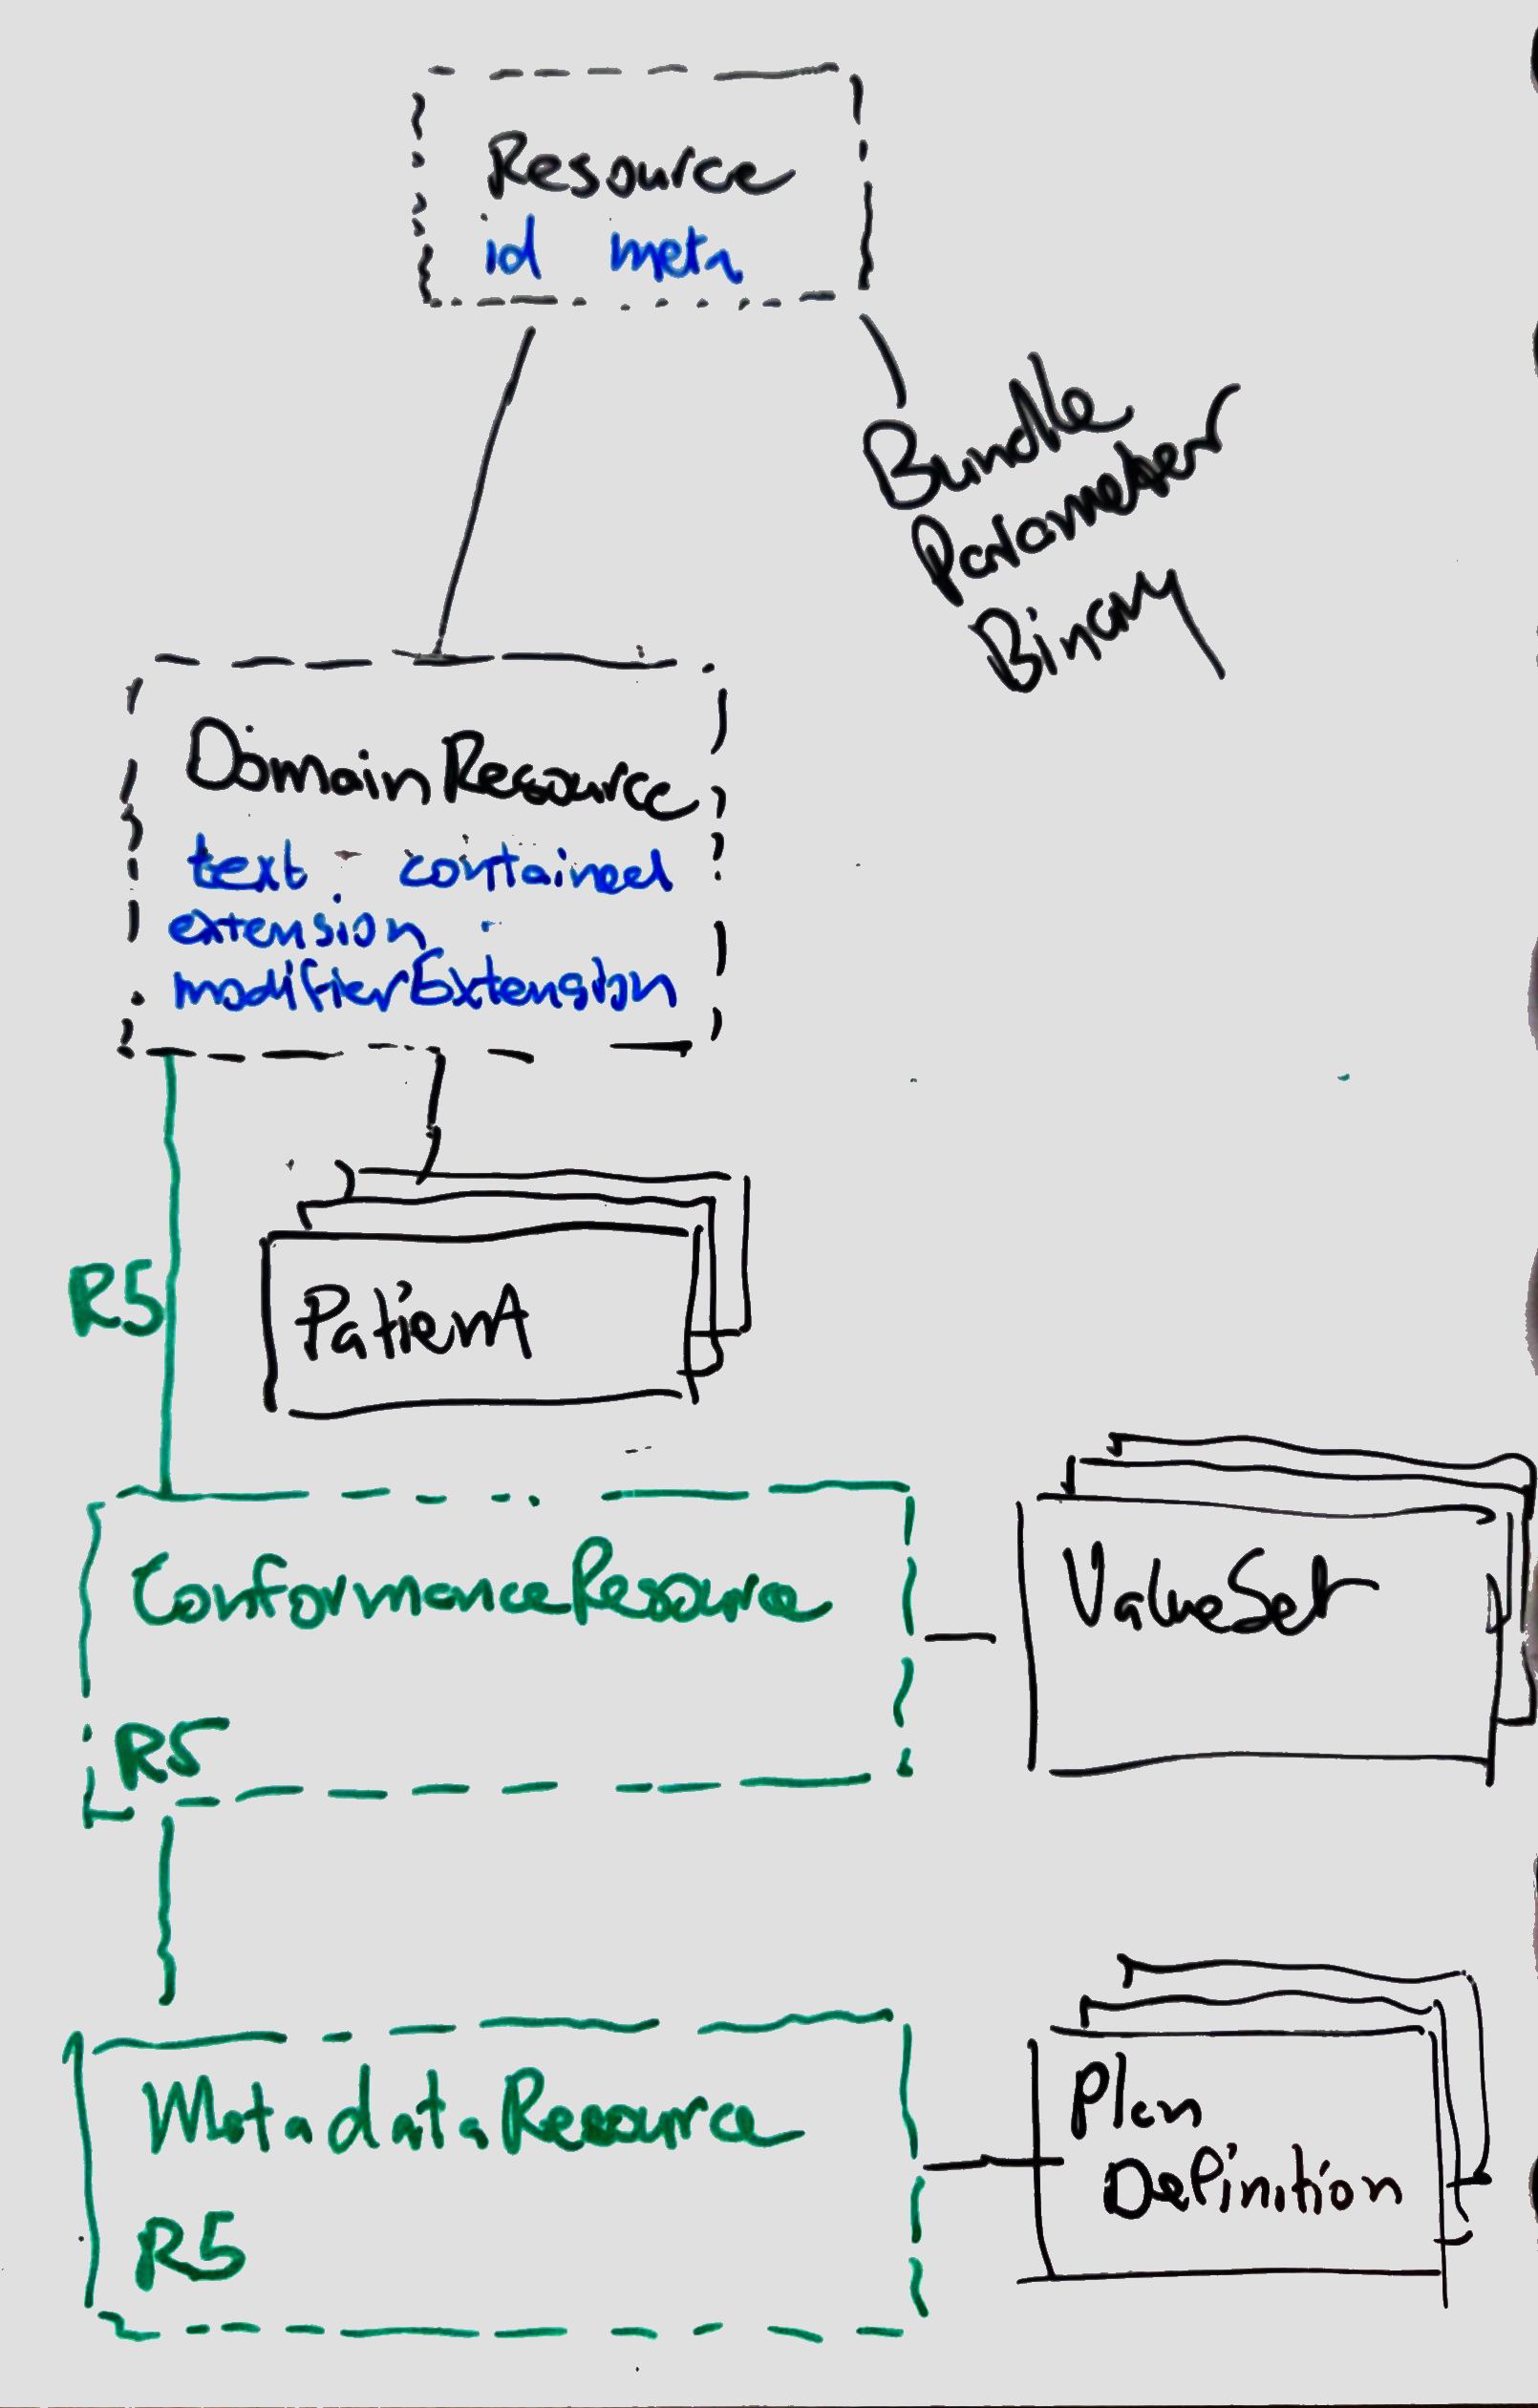 Resource
id meta
Bundle
Parameter
Binary
DomainResource
text contained
extension
modifierExtension
R5
Patient
ConformenceResource
R5
ValueSet
MetadataResource
R5
Plan
Definition